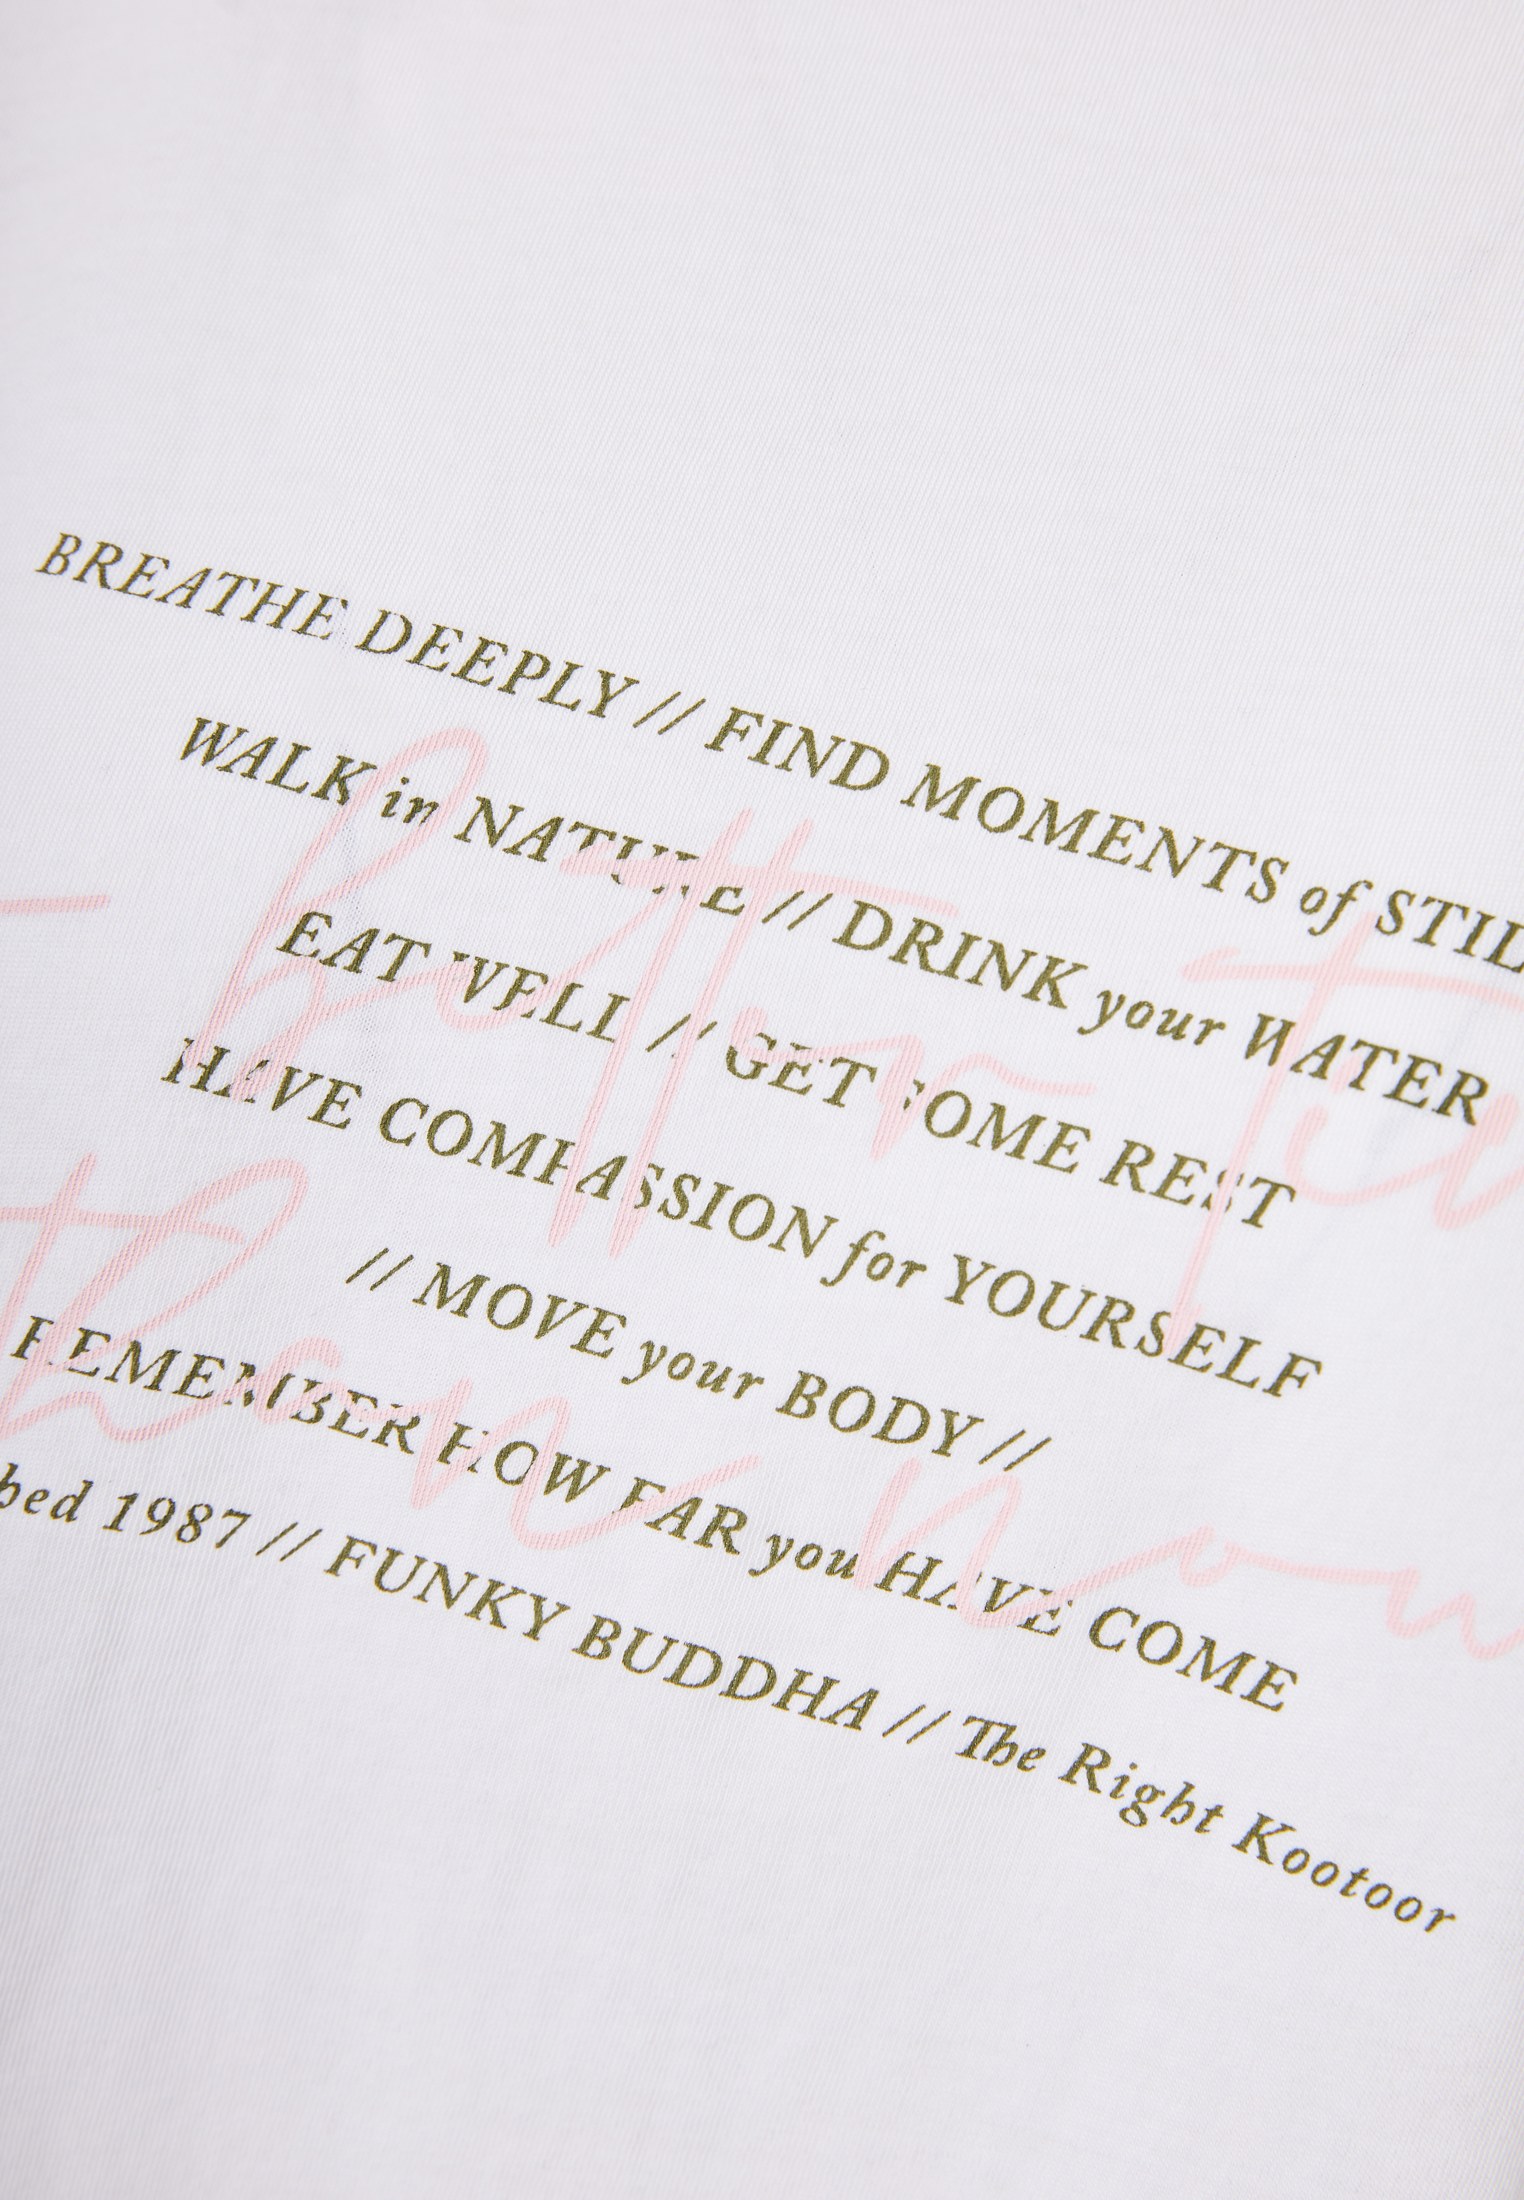 BREATHE DEEPLY // FIND MOMENTS of STIL
WALK in NATURE // DRINK your WATER
EAT WELL // GET SOME REST
HAVE COMPASSION for YOURSELF
// MOVE your BODY //
REMEMBER HOW FAR you HAVE COME
bed 1987 // FUNKY BUDDHA // The Right Kootoor
Better
than now